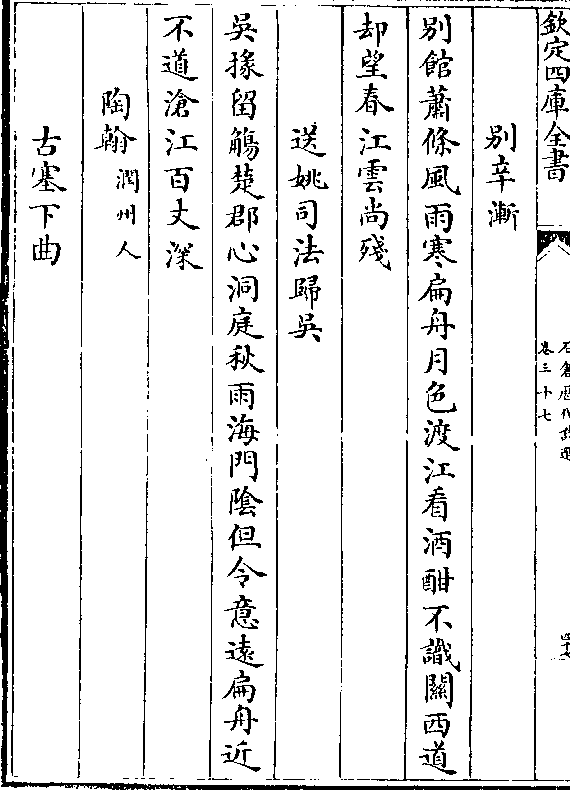 欽定四庫全書
石倉歷代詩選
卷三十七
別辛漸
別館蕭條風雨寒扁舟月色渡江看酒酣不識關西道
却望春江雲尚殘
送姚司法歸吳
吳掾留觴楚郡心洞庭秋雨海門陰但令意遠扁舟近
不道滄江百丈深
陶翰潤州人
古塞下曲